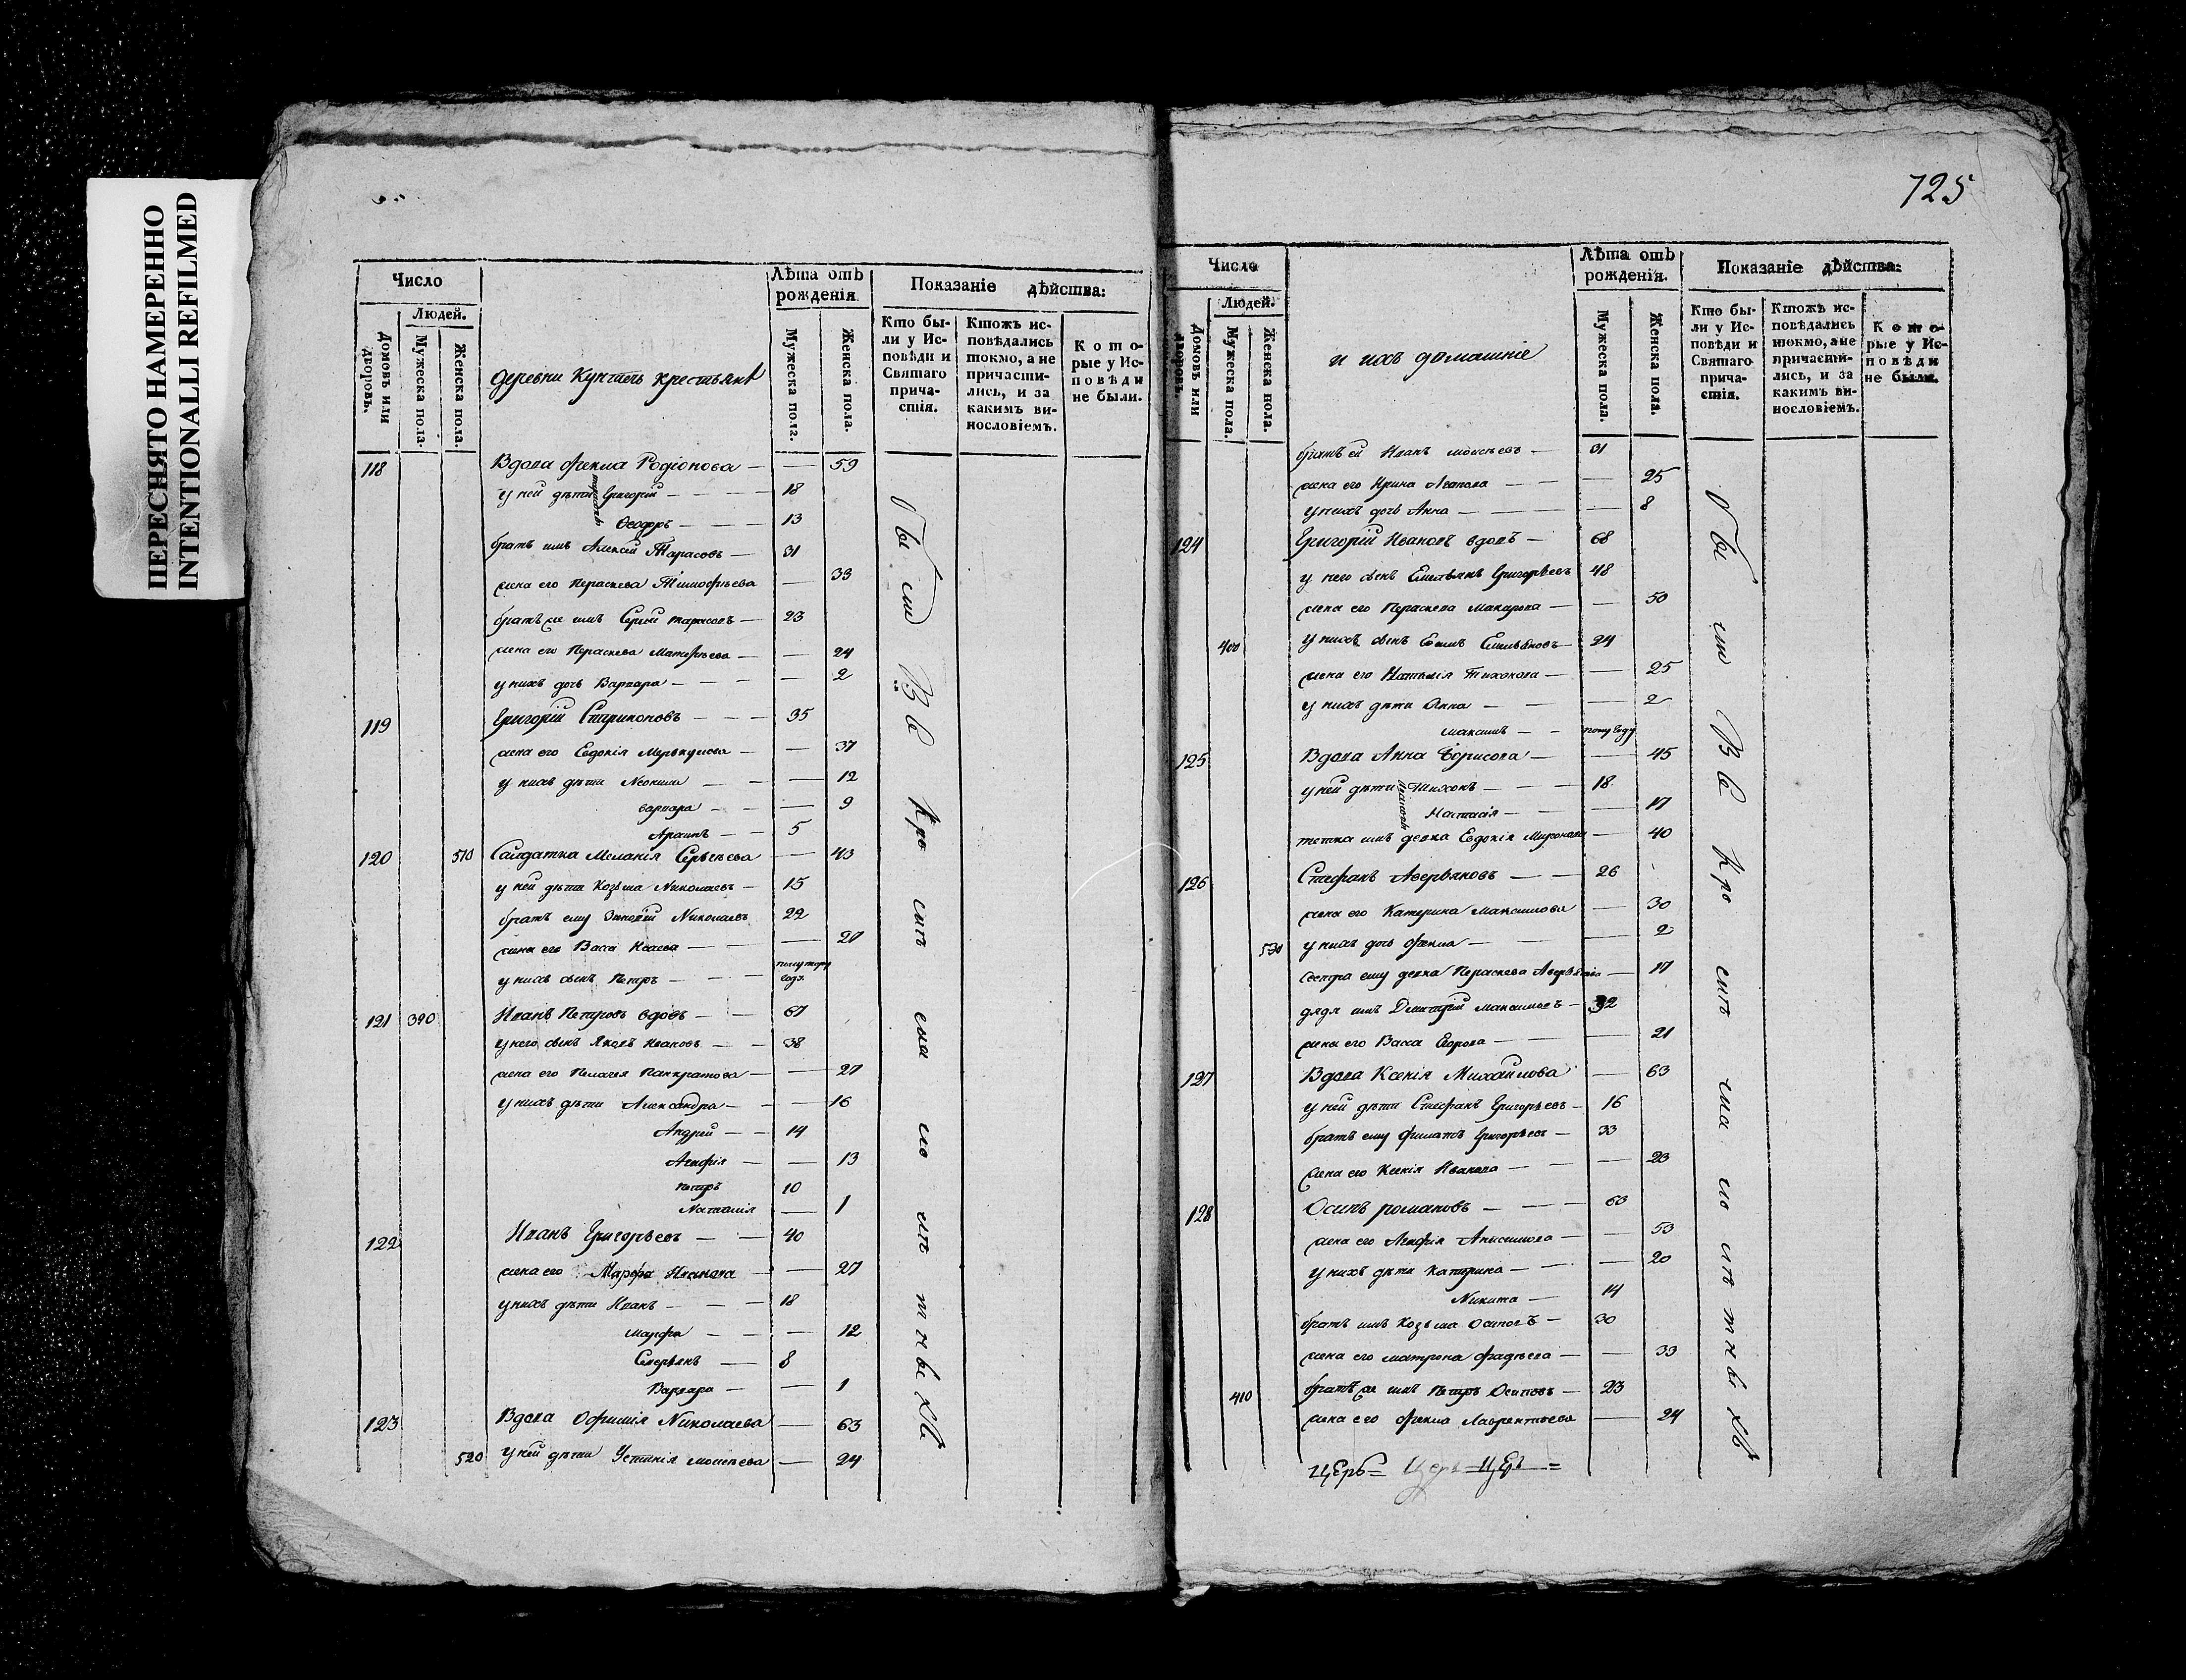 ПЕРЕСНЯТО НАМЕРЕННО
INTENTIONALLI REFILMED
Число
Людей.
Домовъ или дворовъ.
Мужеска пола.
Женска пола.
деревни крестьянъ
Лѣта отъ рожденія
Мужеска пола.
Женска пола.
Показаніе дѣйства:
Кто бы-
ли у Ис-
повѣди и
Святаго
прича-
стія.
Ктожъ ис-
повѣдались
токмо, а не
причасти-
лись, и за
какимъ ви-
нословіемъ.
Кото-
рые у Ис-
повѣди
не были.
118 Вдова Фекла Родіонова — 59
у ней дѣти Григорій — 18
Ѳеодоръ — 13
братъ имъ Алексей Тарасовъ — 31
жена его Параскева Тимофѣева — 33
братъ же имъ Сергій тарасовъ — 23
жена его Параскева Матвѣева — 24
у нихъ дочь Варвара — 2
119 Григорій — 35
жена его Евдокія — 37
у нихъ дѣти — 12
варвара — 9
Архипъ — 5
120 510 Салдатка Меланія Сергѣева — 43
у ней дѣти Козьма Николаевъ — 15
братъ ему Николаевъ 22
жена его Васса — 27
у нихъ сынъ Петръ — полутору года
121 390 Иванъ Петровъ вдовъ — 67
у него сынъ Яковъ Ивановъ — 38
жена его Пелагея Панкратова — 27
у нихъ дѣти Александра — 16
Андрей — 14
Агафія — 13
Петръ 10
Наталія — 1
122 Иванъ Григорьевъ — 40
жена его Марфа Иванова — 27
у нихъ дѣти Иванъ — 18
марфа — 12
8
Варвара — 1
123 Вдова Офимія Николаева — 63
520 у ней дѣти Устинія моисѣева — 24
Бы сто Ве
725
Число
Людей.
Домовъ или дворовъ.
Мужеска пола.
Женска пола.
и ихъ домашніе
Лѣта отъ рожденія.
Мужеска пола.
Женска пола.
Показаніе дѣйства:
Кто бы-
ли у Ис-
повѣди и
Святаго
прича-
стія.
Ктожъ ис-
повѣдались
токмо, а не
причасти-
лись, и за
какимъ ви-
нословіемъ.
Кото-
рые у Ис-
повѣди
не были.
братъ ей Иванъ моисѣевъ — 31
жена его Ирина — 25
у нихъ дочь Анна — 8
124 Григорій Ивановъ вдовъ — 68
у него сынъ Емельянъ Григорьевъ 48
жена его Параскева Макарова — 50
400 у нихъ сынъ Емельяновъ — 24
жена его Наталія Тихонова — 25
у нихъ дѣти Анна — 2
максимъ — полу году
125 Вдова Анна Борисова — 45
у ней дѣти Тихонъ — 18
17
тетка имъ девка Евдокія Миронова — 40
126 Стефанъ Аверьяновъ — 26
жена его Катерина Максимова — 30
530 у нихъ дочь Фекла — 2
сестра ему девка Параскева — 17
дядя имъ Дмитрій Максимовъ — 32
жена его Васса Егорова — 21
127 Вдова Ксенія Михайлова — 63
у ней дѣти Стефанъ Григорьевъ — 16
братъ ему Филатъ Григорьевъ — 33
жена его Ксенія Иванова — 23
128 Осипъ романовъ — 63
жена его Агафія Анисимова — 53
у нихъ дѣти Катерина — 20
Никита — 14
братъ имъ Козьма Осиповъ — 30
жена его матрона фадѣева — 33
410 братъ же имъ Петръ Осиповъ — 23
жена его Фекла Лаврентьева — 24
Бы сто Ве